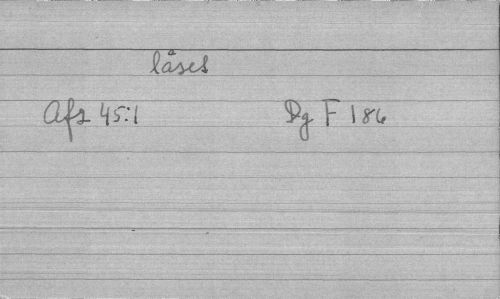 låses
Afs 45:1 Dg F 186